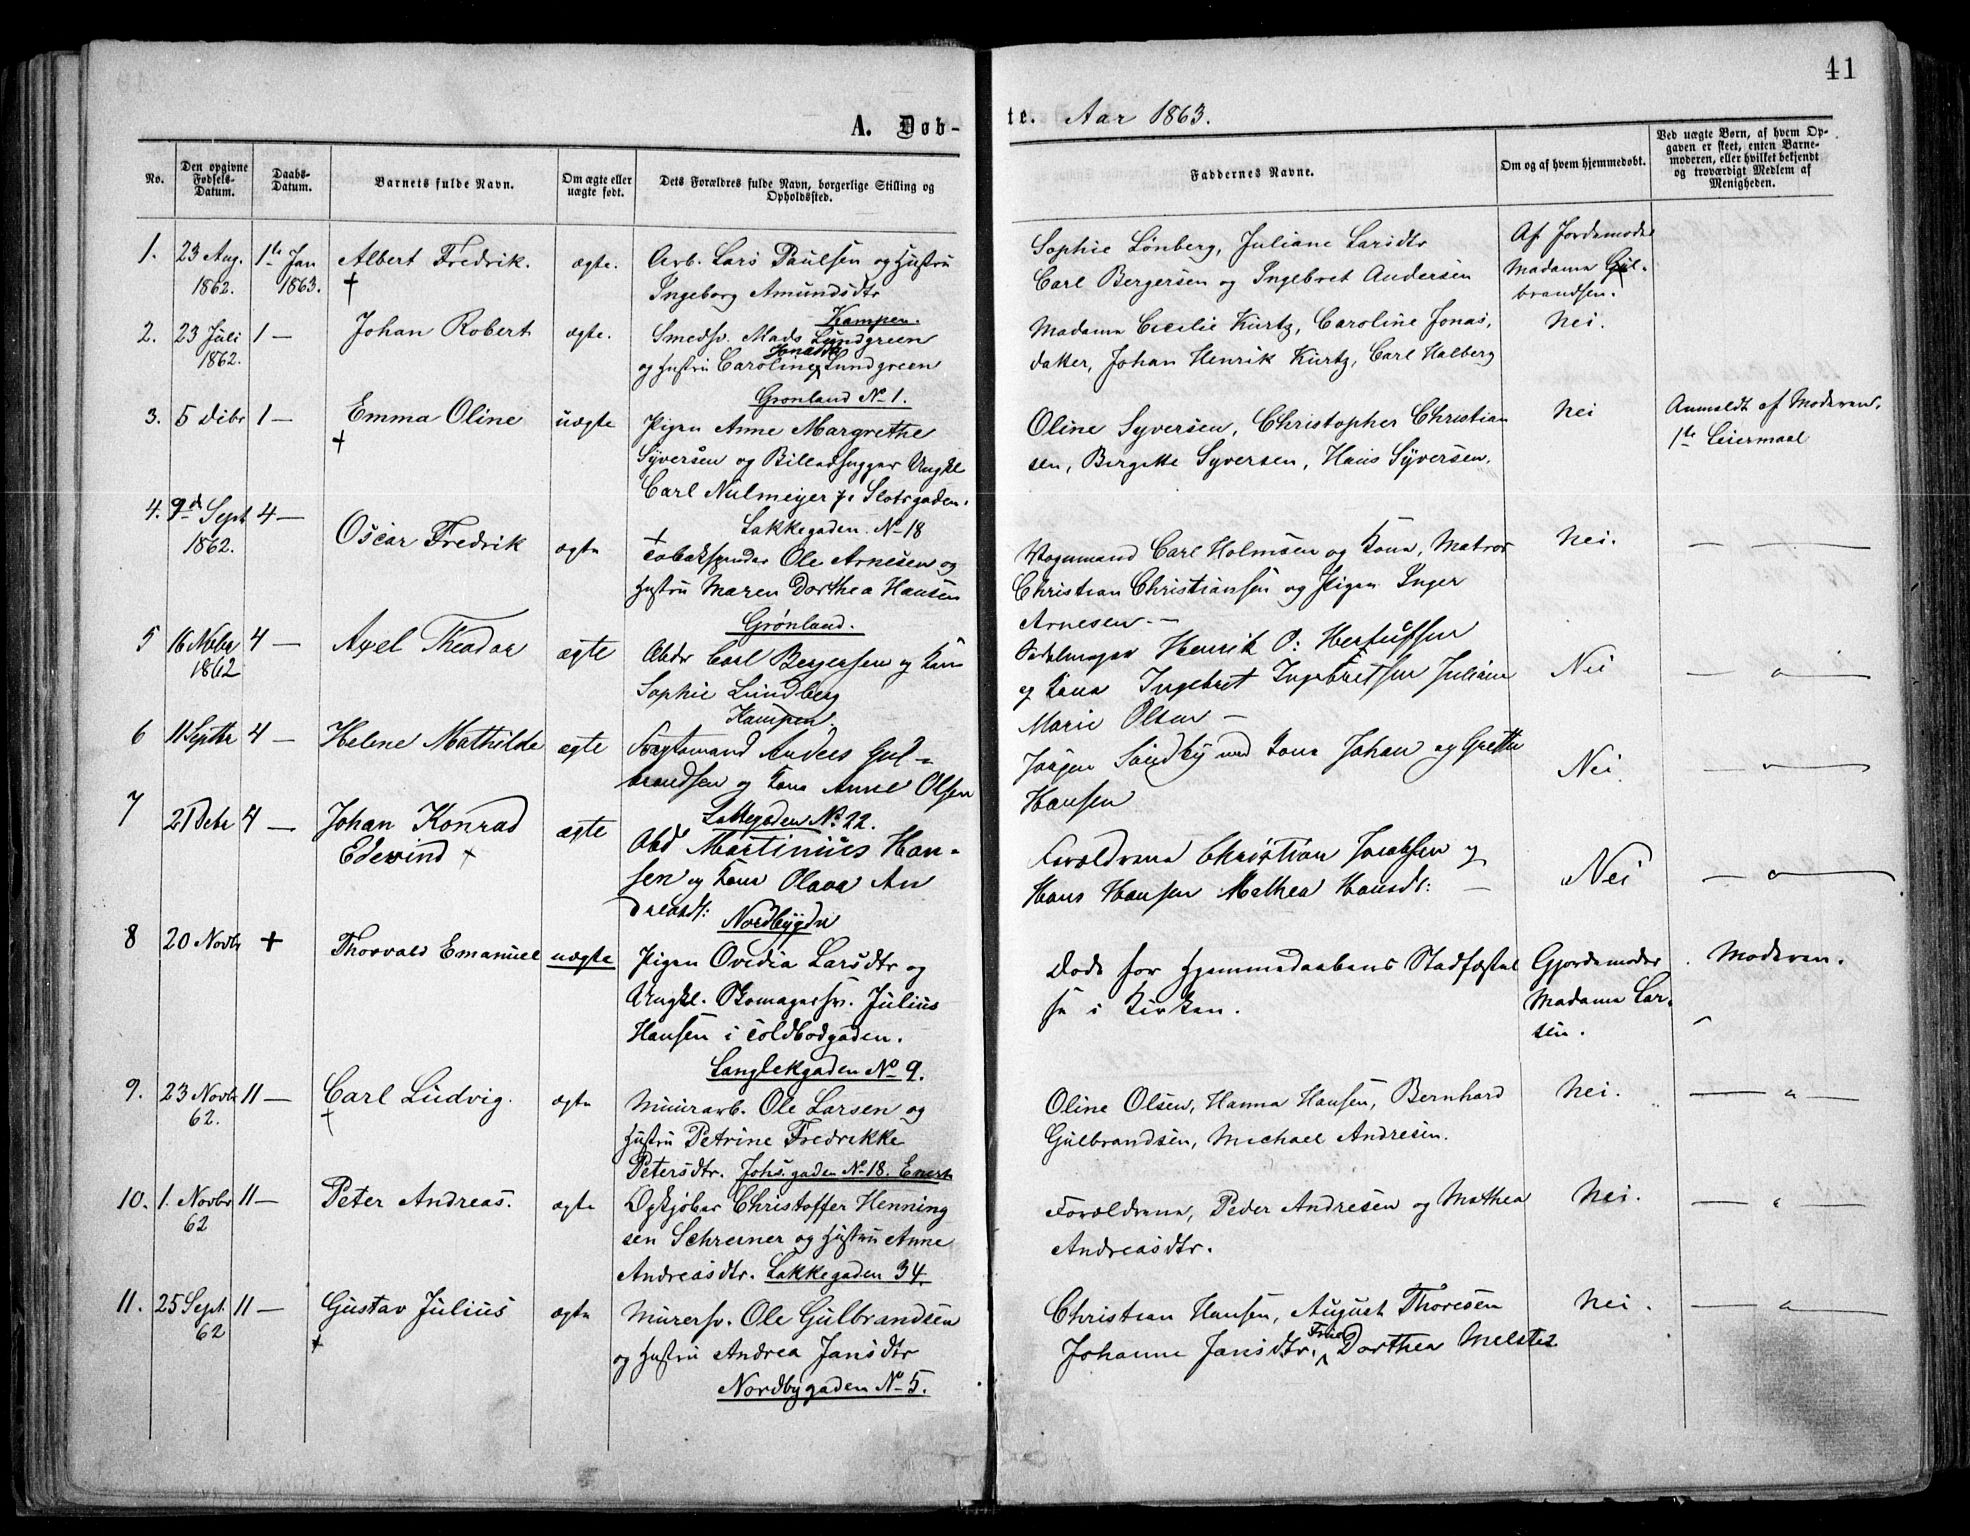 41
A. Døb-
te. Aar 1863.
No.
Den opgivne
Fødsels-
Datum.
Daabs-
Datum.
Barnets fulde Navn.
Om ægte eller
uægte født.
Dets Forældres fulde Navn, borgerlige Stilling og
Opholdssted.
Faddernes Navne.
Om og af hvem hjemmedøbt.
Ved uægte Børn, af hvem Op-
gaven er skeet, enten Barne-
moderen, eller hvilket bekjendt
og troværdigt Medlem af
Menigheden.
1. 23 Aug. 1te Jan Albert Fredrik. ægte. Arb. Lars Paulsen og Hustru
1862. 1863. Ingeborg Amundsdtr
Kampen.
Sophie Lönberg, Juliane Larsdtr
Carl Bergersen og Ingebret Andersen
Af Jordemoder
Madame Gul-
brandsen.
2. 23 Juli 1 — Johan Robert ægte. Smedsv. Mads Lundgreen
1862. og Hustru Caroline Jonasdtr Lundgreen
Grønland No 1.
Madame Cecilie Kurtz, Caroline Jonas,
datter, Johan Henrik Kurtz, Carl Halberg
Nei.
3. 5 Dcbr 1 — Emma Oline uægte Pigen Anne Margrethe
Syversen og Billedhugger Ungkl
Carl Nulmeijer 7. Slotsgaden.
Lakkegaden. No 18
Oline Syversen, Christopher Christian
sen, Bergette Syversen, Hans Syversen.
Nei
Anmeldt af Moderen.
1te Leiermaal
4. 9de Sept 4 — Oscar Fredrik ægte Tobakspinder Ole Arnesen og
1862. Hustru Maren Dorthea Hansen
Grønland.
Vognmand Carl Holmsen og Kone, Matros
Christian Christiansen og Pigen Inger
Arnesen —
Nei.
5 16 Novbr 4 — Axel Theodor ægte Abdr Carl Bergersen og Kone
1862 Sophie Lundberg
Kampen.
Sadelmager Henrik O: Hertufsen
og Kone Ingebret Ingebretsen Juliane
Marie Olsen —
Nei
6 11 Septbr 4 — Helene Mathilde ægte Fragtemand Anders Gul-
brandsen og Kone Anne Olsen
Lakkegaden No 22.
Jörgen Sundby med Kone Johan og Grethe
Hansen
Nei
7 21 Debr 4 — Johan Konrad ægte Abd Martinius Han-
Edevind sen og Kone Olava An
dreasdt: Nordbygdn
Forældrene Christian Jacobsen og
Hans Hansen Mathea Hansdt:
Nei
8 20 Novbr + Thorvald Emanuel uægte Pigen Ovidia Larsdtr og
Ungkl. Skomagersv. Julius
Hansen i Toldbodgaden.
Langlekgaden No 9.
Døde før Hjemmedaabens Stadfæstel
se i Kirken.
Gjordemoder
Madame Lar-
sen.
Moderen.
9. 23 Novbr 11 — Carl Ludvig. ægte Muurarb. Ole Larsen og
62. Hustru Petrine Fredrikke
Petersdtr. Johs.gaden No 18. Enerh
Oline Olsen, Hanna Hansen, Bernhard
Gulbrandsen, Michael Andresen.
Nei.
10. 1. Novbr 11 — Peter Andreas. ægte Opkjøber Christoffer Henning
62 sen Schreiner og Hustru Anne
Andreasdtr. Lakkegaden 34.
Forældrene, Peder Andresen og Mathea
Andreasdtr.
Nei.
11. 25 Sept. 11 — Gustav Julius ægte Murersv. Ole Gulbrandsen
62 og Hustru Andrea Jansdtr
Nordbygaden No 5.
Christian Hansen, August Thoresen
Johanne Jansdtr. Frue Dorthea Melster
Nei.